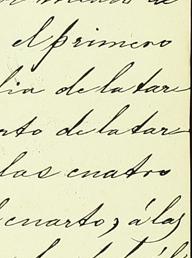 el primero
dia de la tar
rto de la tar
las cuatro
cuarto, á las